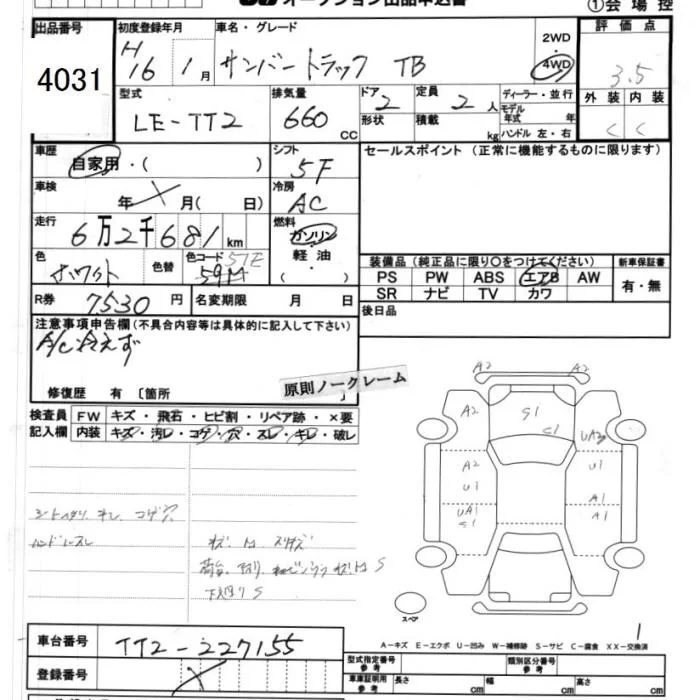 オークション出品申込書
①会場控
出品番号 初度登録年月 車名・グレード 2WD 評価点
4031 H16 1月 サンバートラック TB 4WD 3.5
型式 排気量 ドア 定員 ディーラー・並行 外装 内装
LE-TT2 660 CC 2 2人 モデル年式 年 C C
形状 積載 kg ハンドル 左・右
車歴 シフト セールスポイント (正常に機能するものに限ります)
自家用・( ) 5F
車検 冷房
年 月( 日) AC
走行 燃料
6万2千681km ガソリン・軽油
色 色替 色コード 51E ( )
ホワイト 59M
装備品(純正品に限り○をつけてください) 新車保証書
PS PW ABS エアB AW 有・無
SR ナビ TV カワ
R券 7530円 名変期限 月 日 後日品
注意事項申告欄(不具合内容等は具体的に記入して下さい)
A/C冷えず
修復歴 有 〔箇所
原則ノークレーム
検査員 FW キズ・飛石・ヒビ割・リペア跡・×要
記入欄 内装 キズ・汚レ・コゲ・穴・スレ・キレ・破レ
A2
A2
A2 S1 C1 UA3
A2 U1
U1 A1
UA1 S1 A1
シートヘタリ キレ コゲ穴
ハンドルスレ
下廻りS
A2
スペア
1
A-キズ E-エクボ U-凹み W-補修跡 S-サビ C-腐食 XX-交換済
車台番号 TT2-227155
登録番号
型式指定番号 参考 類別区分番号 参考
車庫証明用 参考 長さ cm 幅 cm 高さ cm